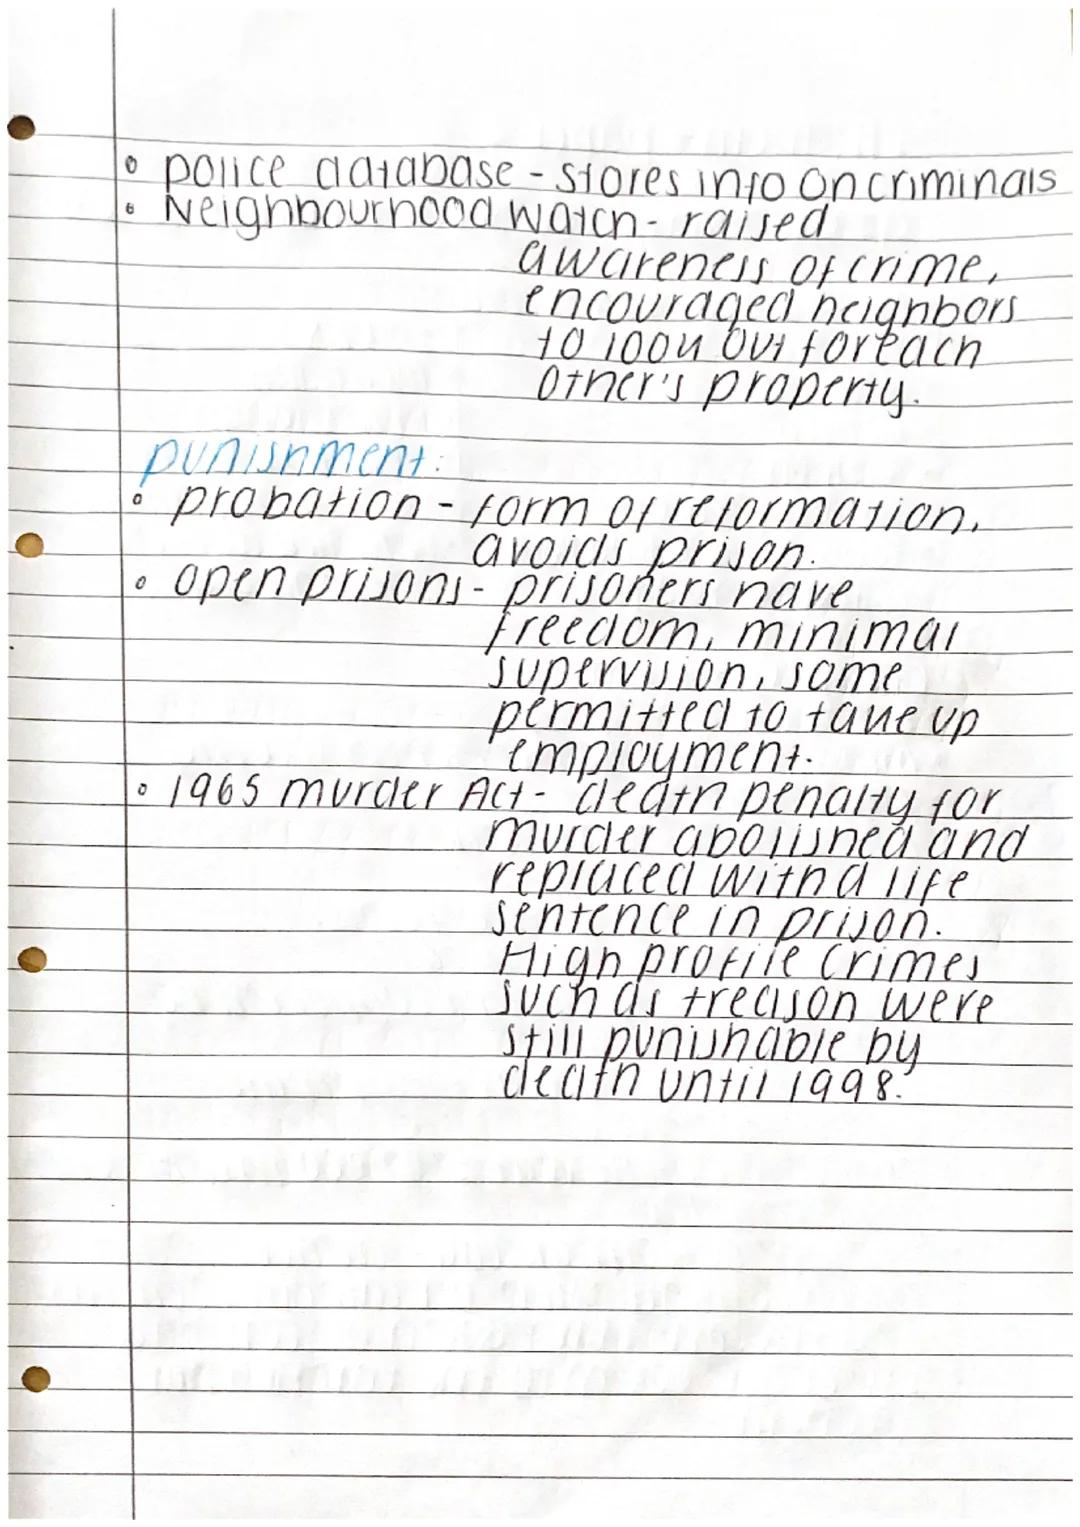 • police database - stores info on criminals
• Neighbourhood watch - raised
awareness of crime,
encouraged neighbors
to look out for each
other's property.
punishment:
• probation - form of reformation,
avoids prison.
• open prisons - prisoners have
freedom, minimal
supervision, some
permitted to take up
employment.
• 1965 murder Act - death penalty for
murder abolished and
replaced with a life
sentence in prison.
High profile crimes
such as treason were
still punishable by
death until 1998.